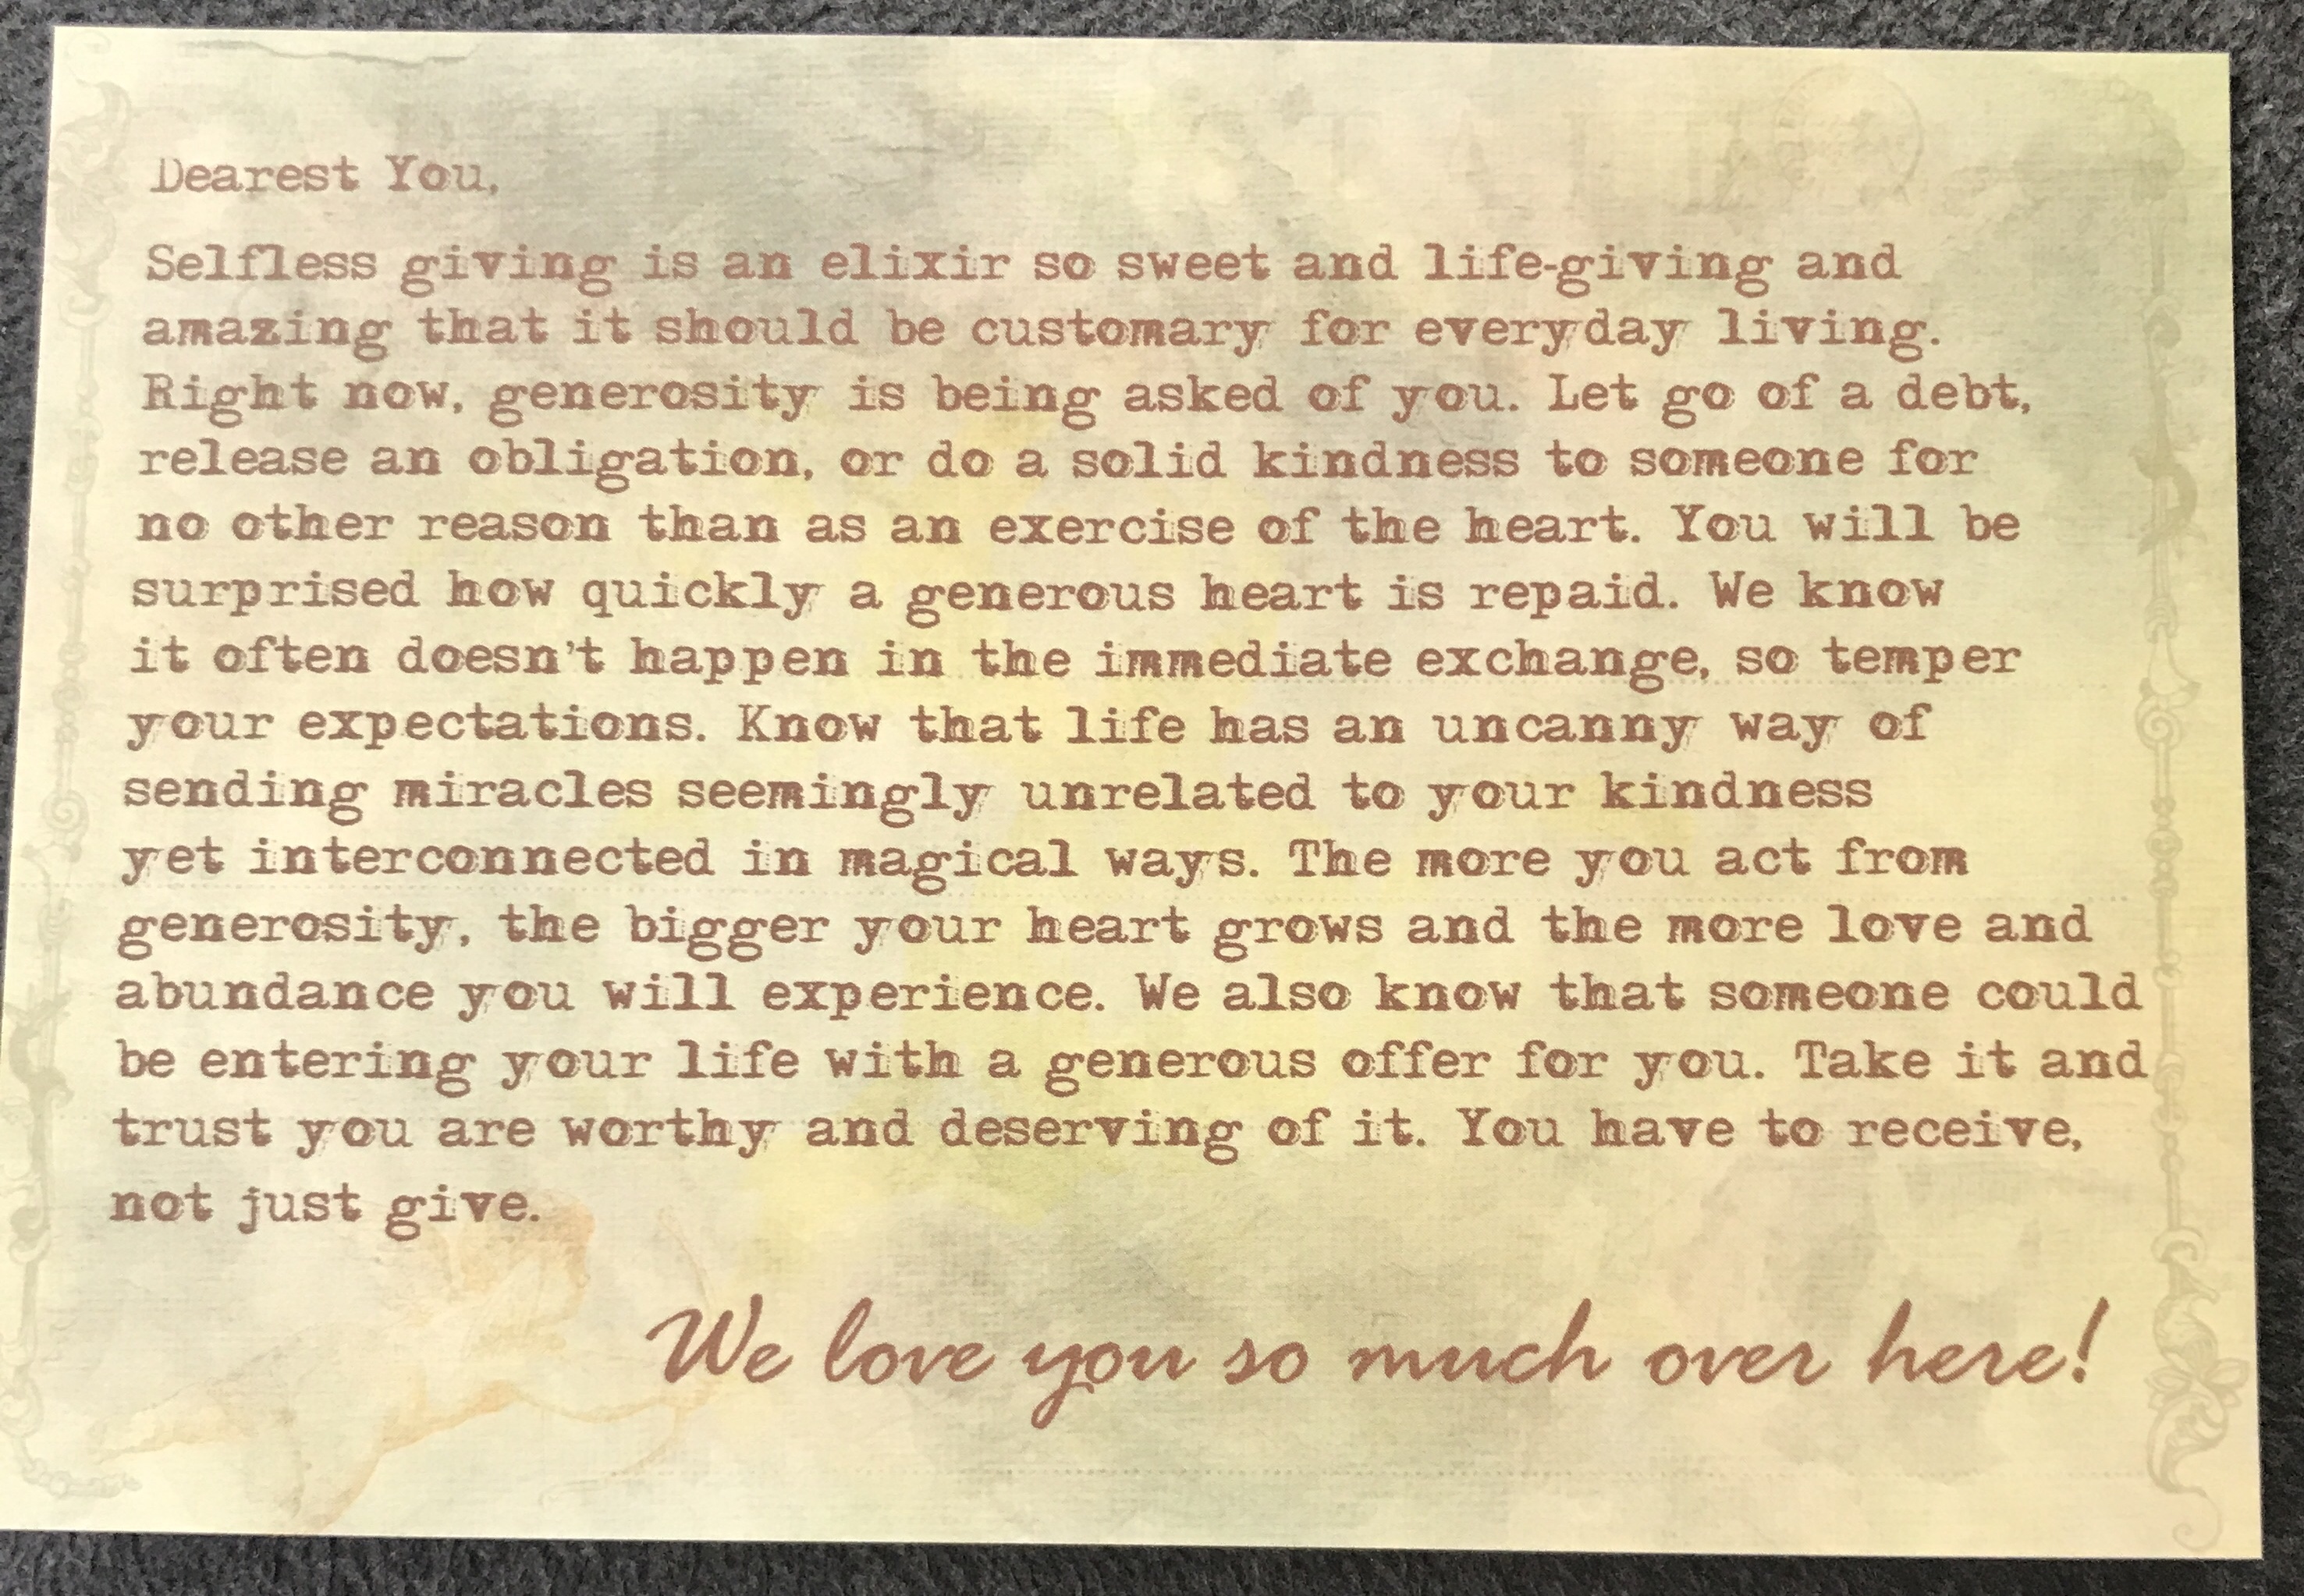 Dearest You,
Selfless giving is an elixir so sweet and life-giving and
amazing that it should be customary for everyday living.
Right now, generosity is being asked of you. Let go of a debt,
release an obligation, or do a solid kindness to someone for
no other reason than as an exercise of the heart. You will be
surprised how quickly a generous heart is repaid. We know
it often doesn't happen in the immediate exchange, so temper
your expectations. Know that life has an uncanny way of
sending miracles seemingly unrelated to your kindness
yet interconnected in magical ways. The more you act from
generosity, the bigger your heart grows and the more love and
abundance you will experience. We also know that someone could
be entering your life with a generous offer for you. Take it and
trust you are worthy and deserving of it. You have to receive,
not just give.
We love you so much over here!